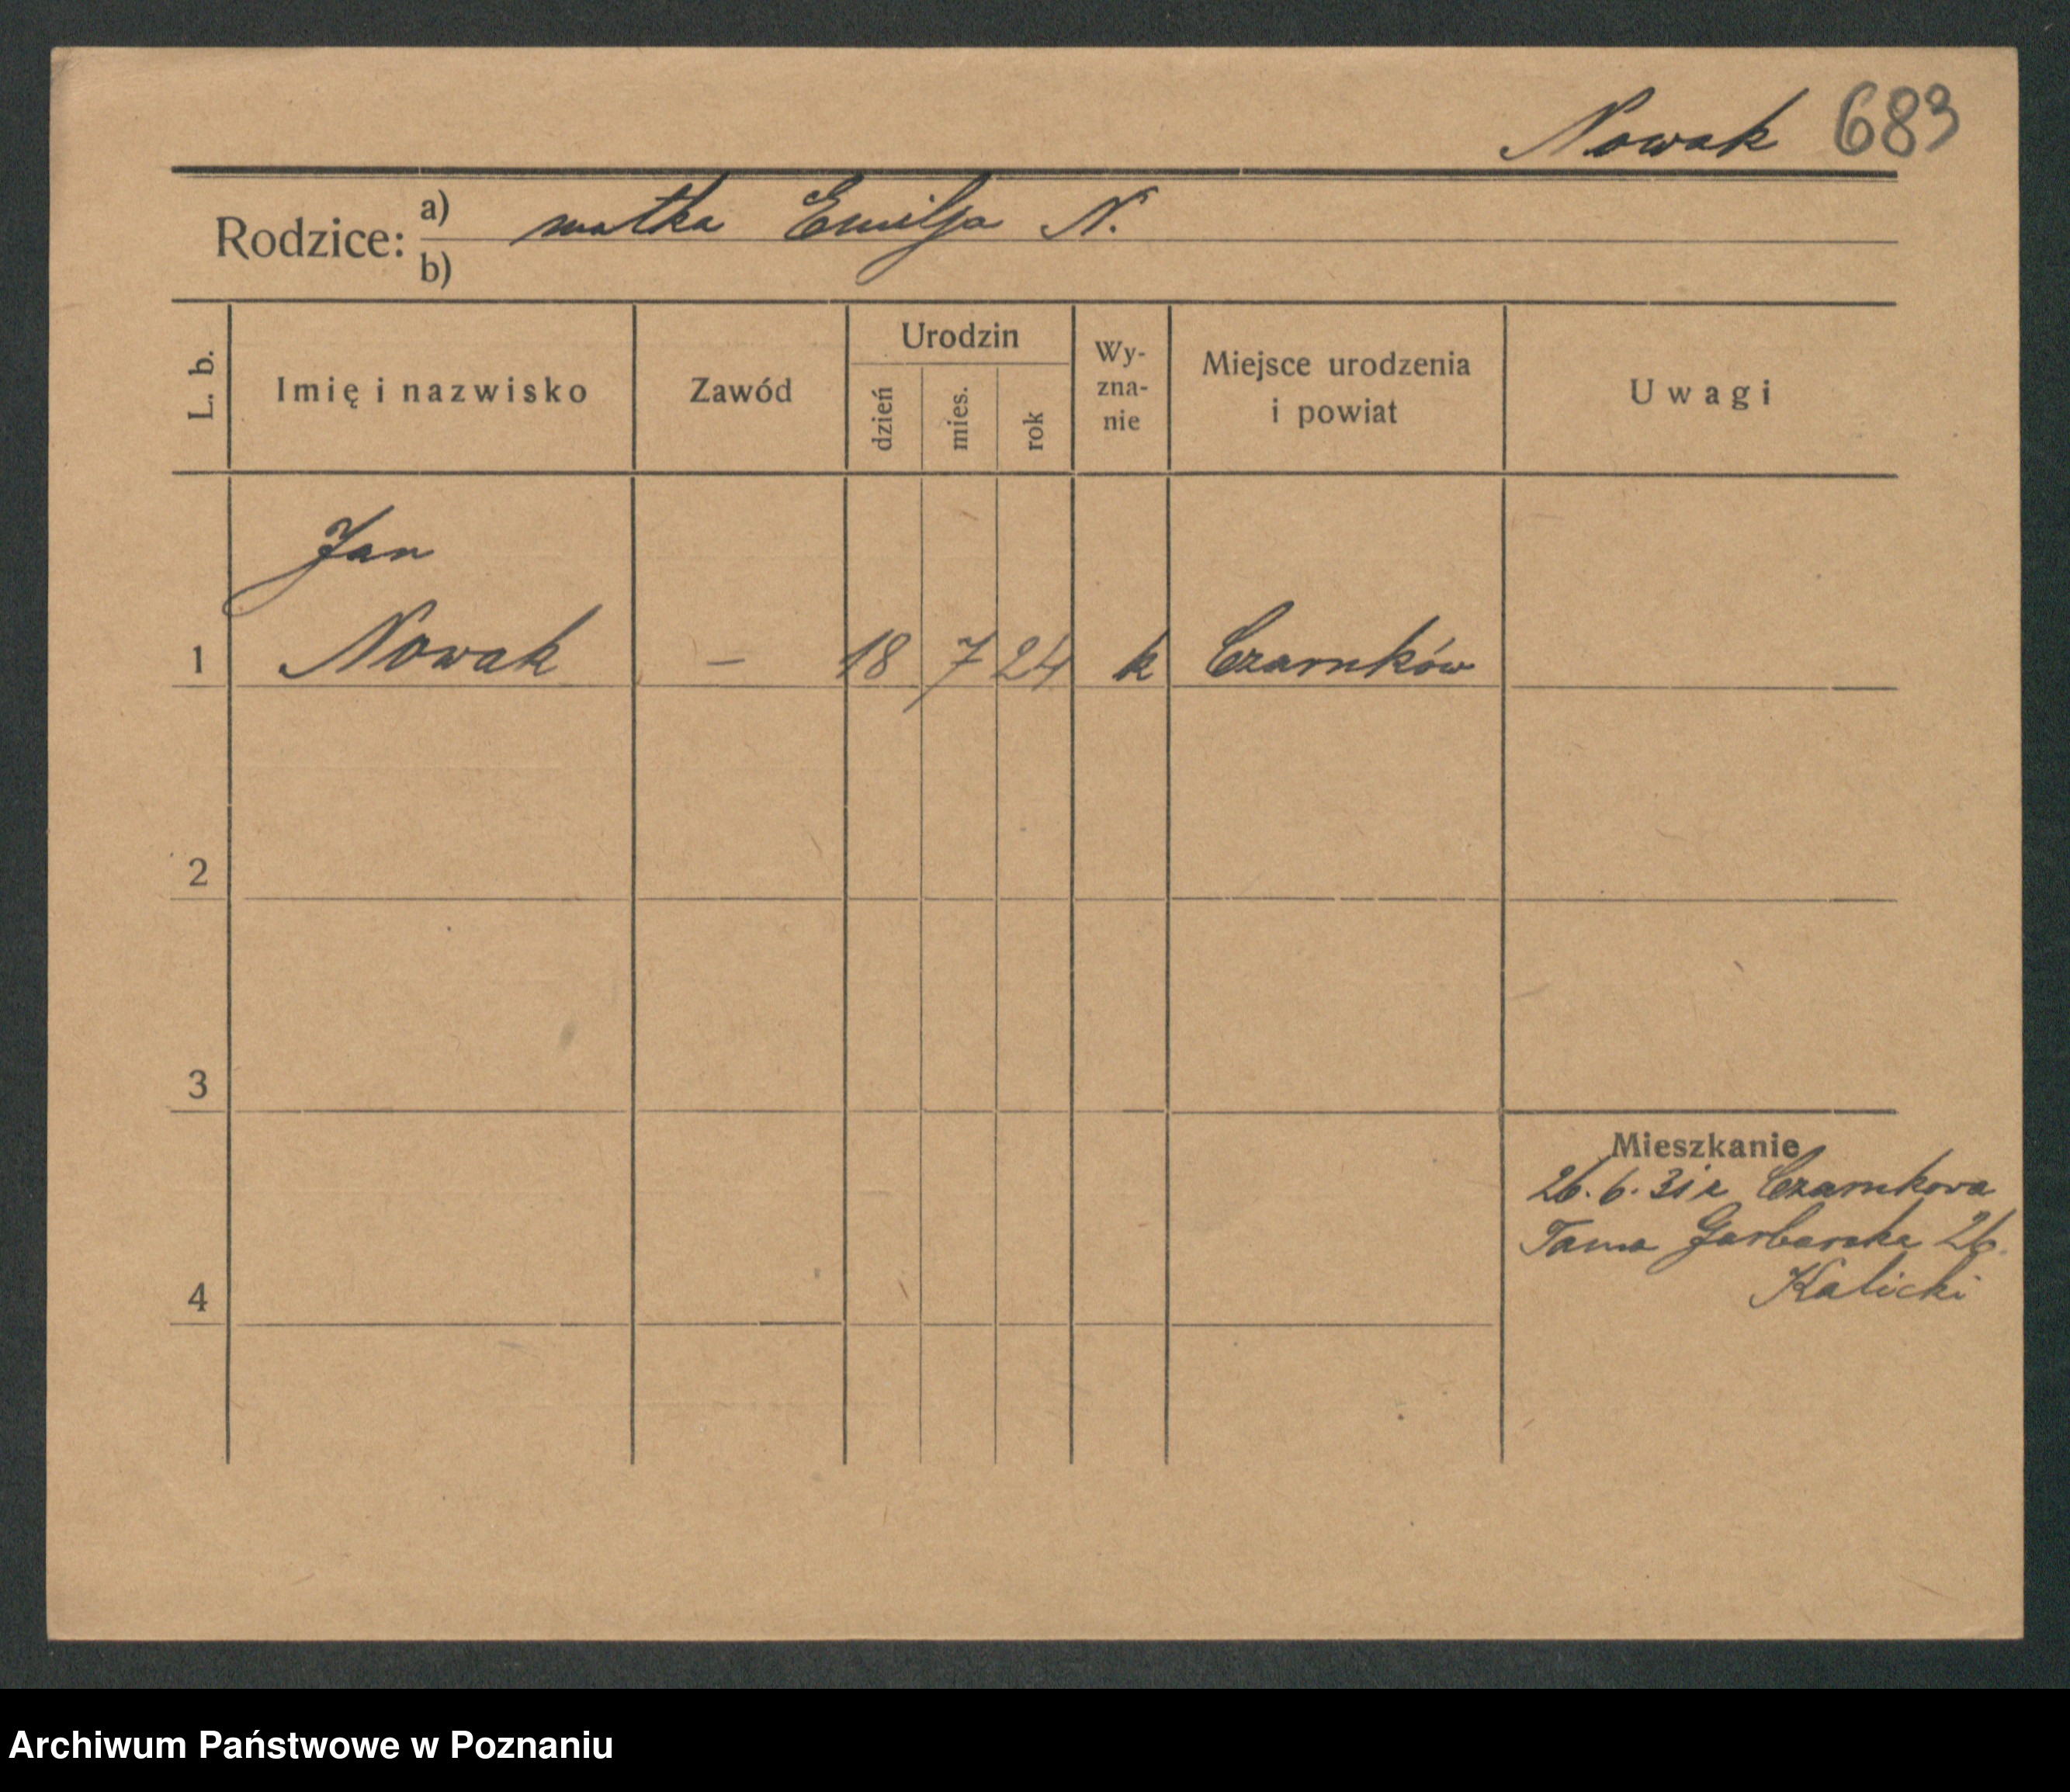 Nowak 683
Rodzice: a) matka Emilja N.
b)
L. b.
Imię i nazwisko
Zawód
Urodzin
dzień
mies.
rok
Wy-
zna-
nie
Miejsce urodzenia
i powiat
Uwagi
Jan
1 Nowak – 18 7 24 k Czarnków
2
3
Mieszkanie
26.6.31 z Czarnkowa
Tama Garbarska 26.
Kalicki
4
Archiwum Państwowe w Poznaniu